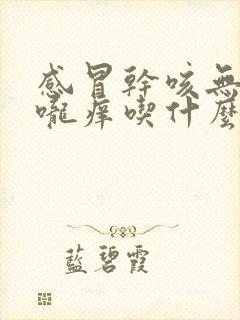 感冒幹咳無
嚨癢喫什麼
藍碧霞